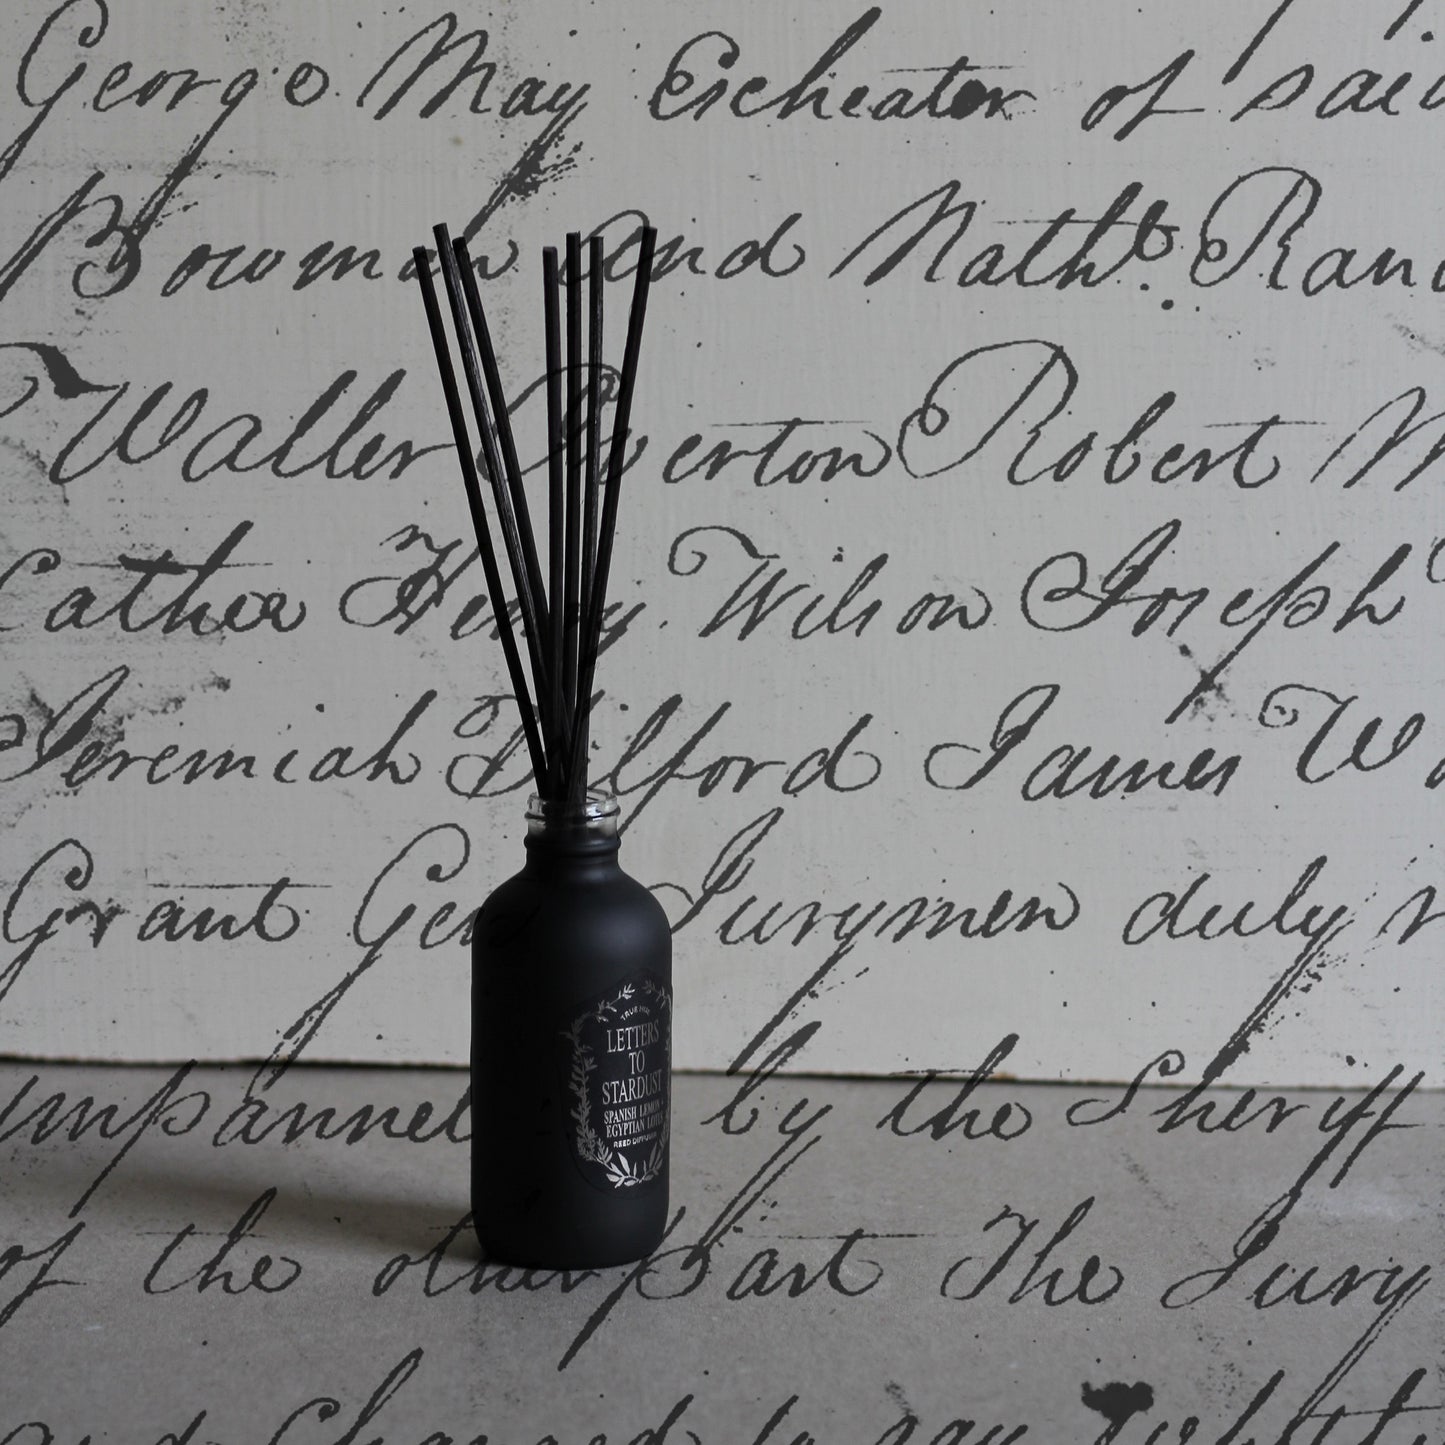 George May Escheater of said
Bowman and Nath.t Rand
Waller Overton Robert
Cather Henry Wilson Joseph
Jeremiah Tilford James
Grant Gen Jurymen duly
impannel by the Sheriff
of the other part The Jury
and Charged to say
LETTERS
TO
STARDUST
SPANISH LEMON +
EGYPTIAN LOTUS
REED DIFFUSER